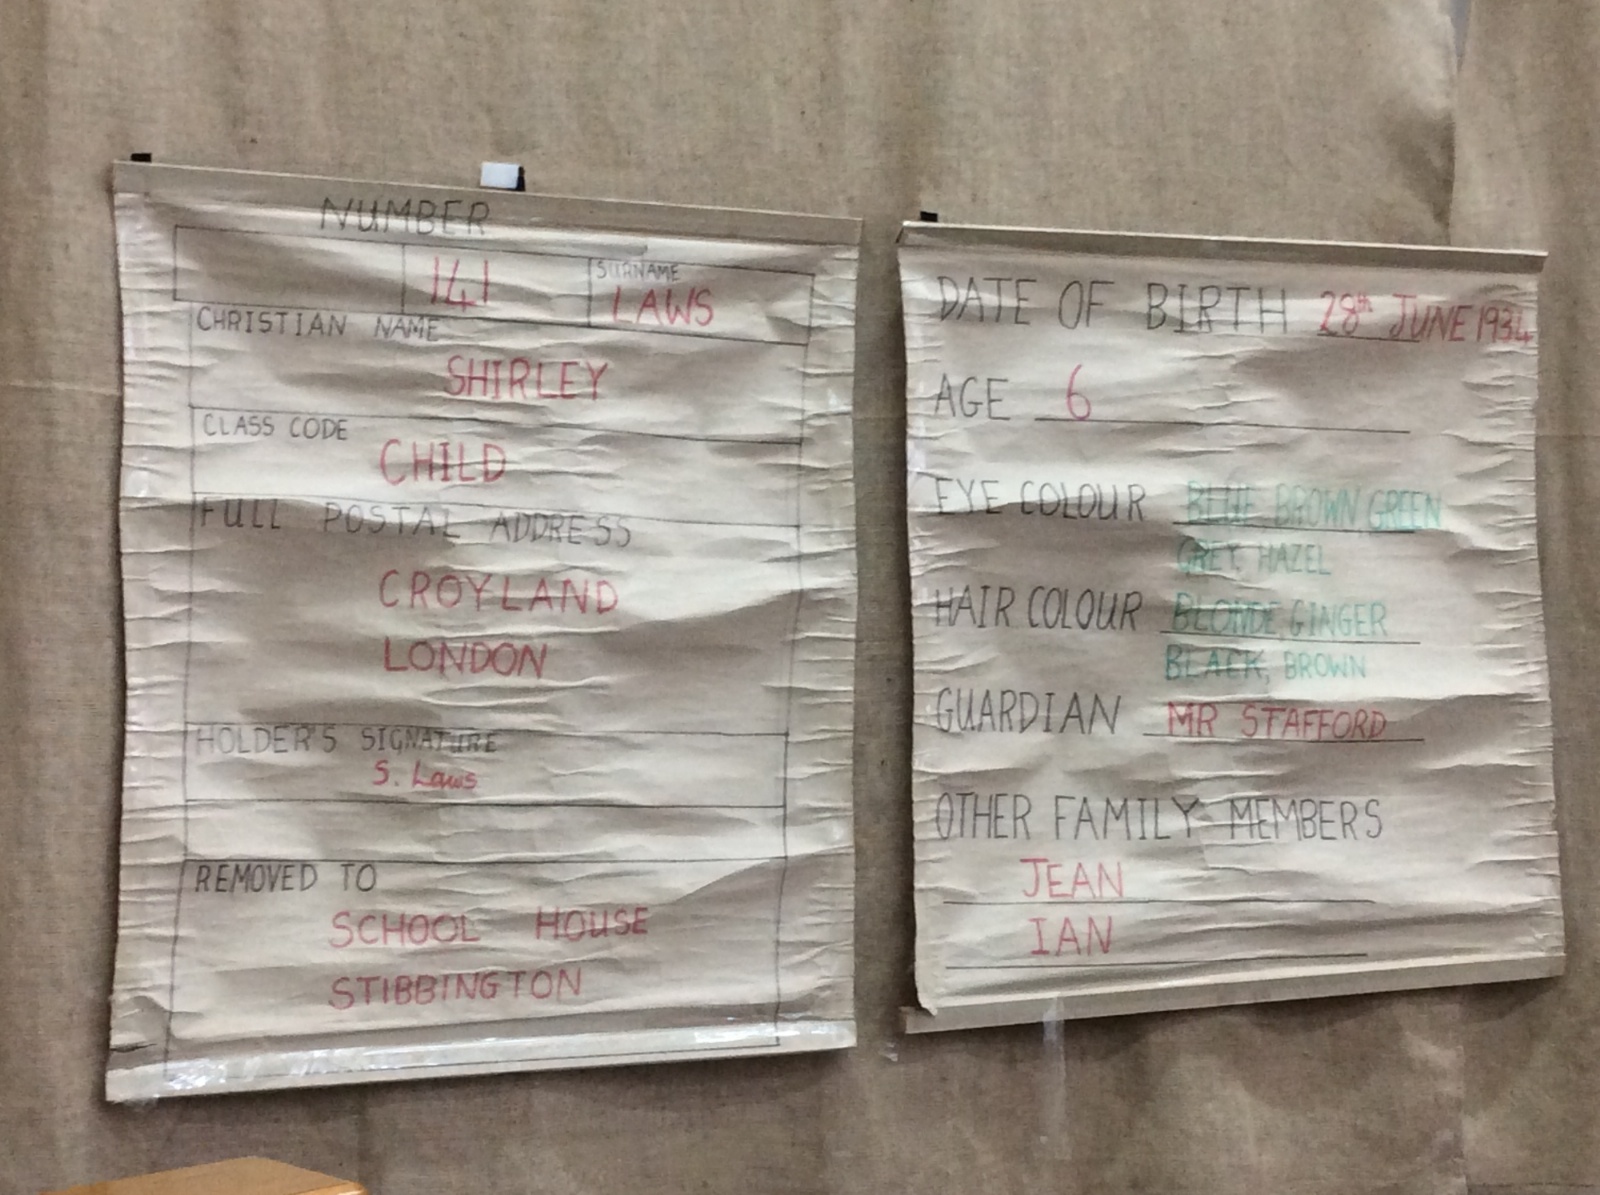 NUMBER
141
SURNAME
LAWS
CHRISTIAN NAME
SHIRLEY
CLASS CODE
CHILD
FULL POSTAL ADDRESS
CROYLAND
LONDON
HOLDER'S SIGNATURE
S. Laws
REMOVED TO
SCHOOL HOUSE
STIBBINGTON
DATE OF BIRTH 28th JUNE 1934
AGE 6
EYE COLOUR BLUE BROWN GREEN
GREY, HAZEL
HAIR COLOUR BLONDE, GINGER
BLACK, BROWN
GUARDIAN MR STAFFORD
OTHER FAMILY MEMBERS
JEAN
IAN